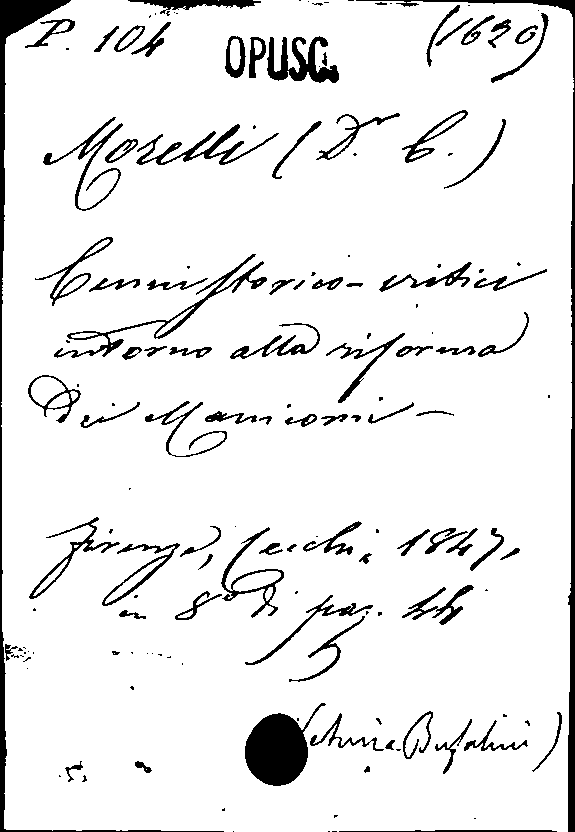 P. 104 OPUSC. (1620)
Morelli (Dr. C.)
Cenni storico-critici
intorno alla riforma
dei Manicomi -
Firenze, Cecchi, 1847,
in 8° di pag. 44
Bufalini)